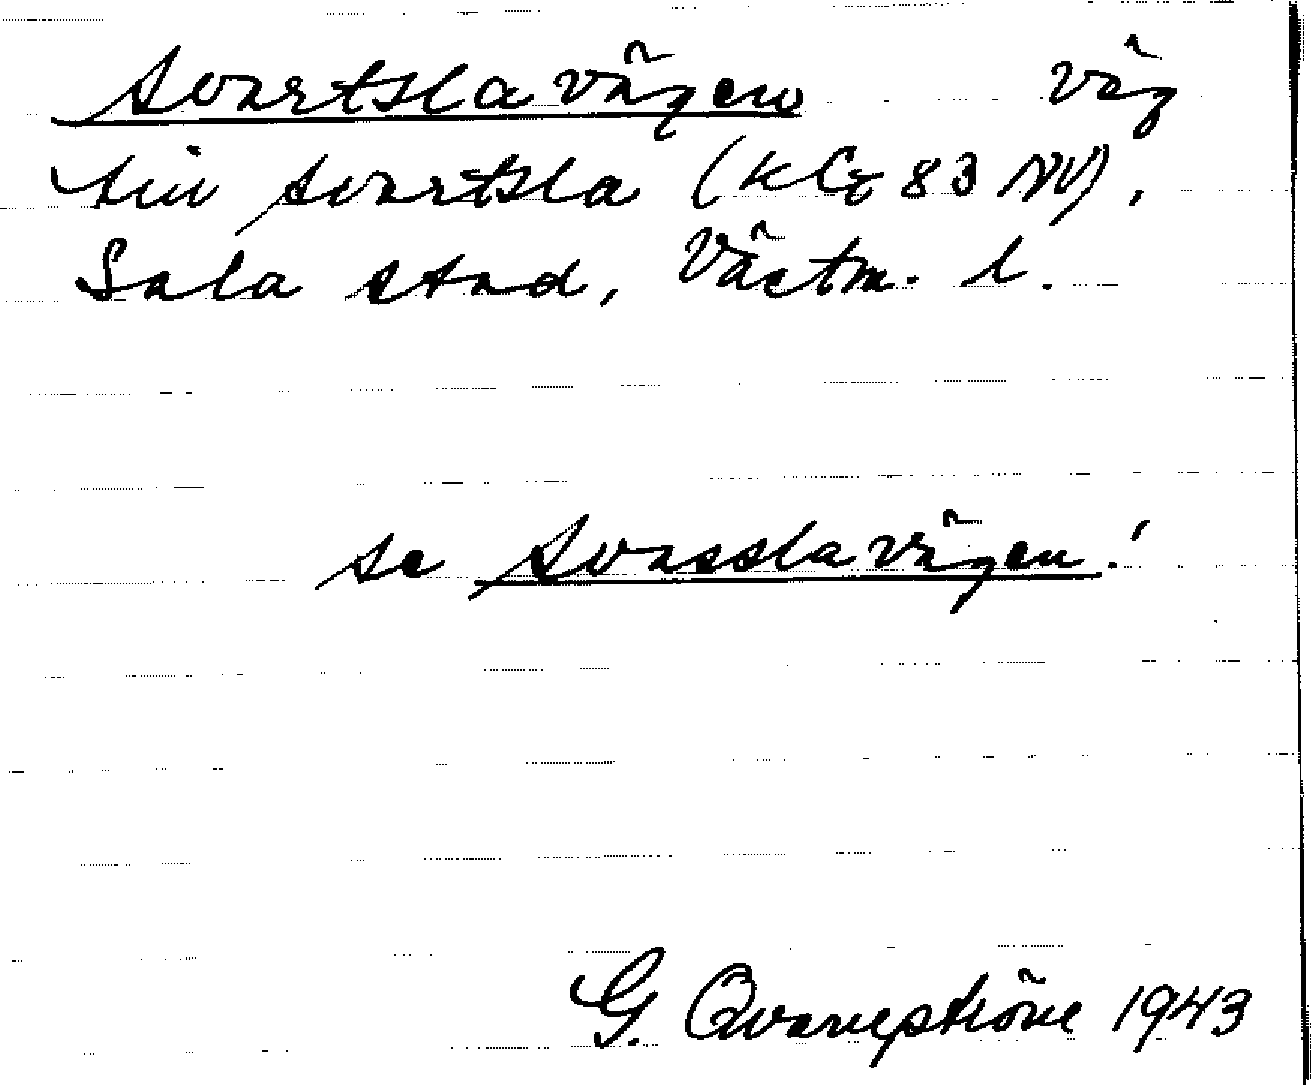 Svartslavägen väg
till Svartsla (Kbg 83 NV),
Sala stad, Västm. l.
se Svasslavägen!
G. Qvarnström 1943